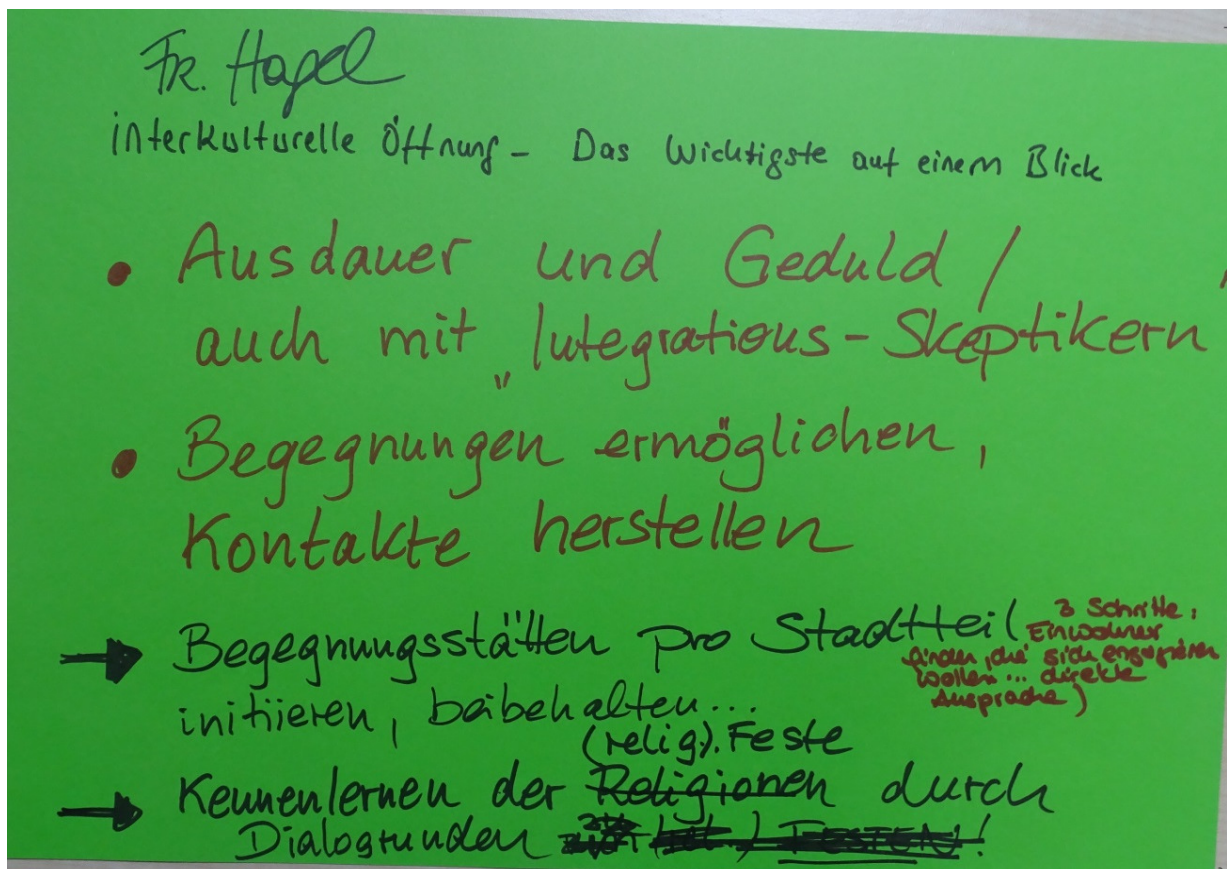 Fr. Hagel
interkulturelle Öffnung - Das Wichtigste auf einem Blick
• Ausdauer und Geduld /
auch mit „Integrations-Skeptikern
• Begegnungen ermöglichen,
Kontakte herstellen
→ Begegnungsstätten pro Stadtteil
initiieren, beibehalten...
(3 Schritte:
Einwohner
finden, die sich engagieren
wollen... direkte
Ansprache)
(relig.). Feste
→ Kennenlernen der Religionen durch
Dialogrunden FESTEN!